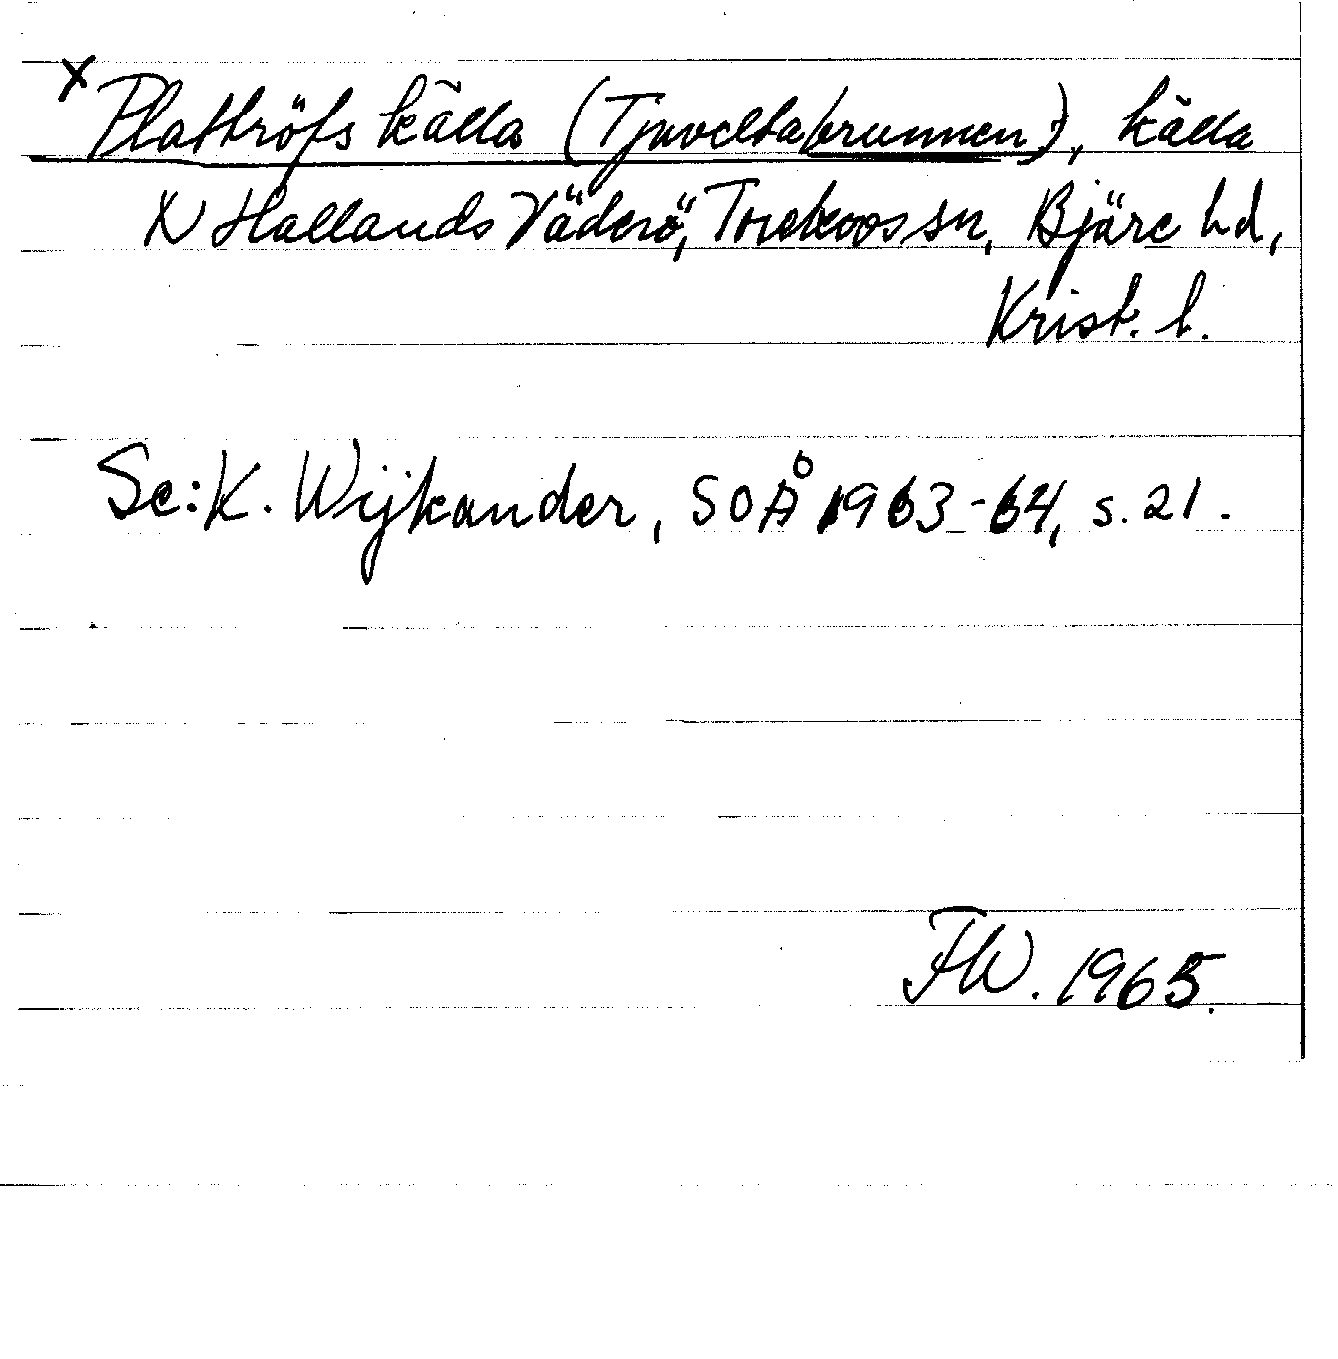 x Plattröfs källa (Tjuvaltabrunnen), källa
X Hallands Väderö, Torekovs sn, Bjäre hd,
Krist. l.
Se: K. Wijkander, SOÅ 1963-64, s. 21.
FW. 1965.